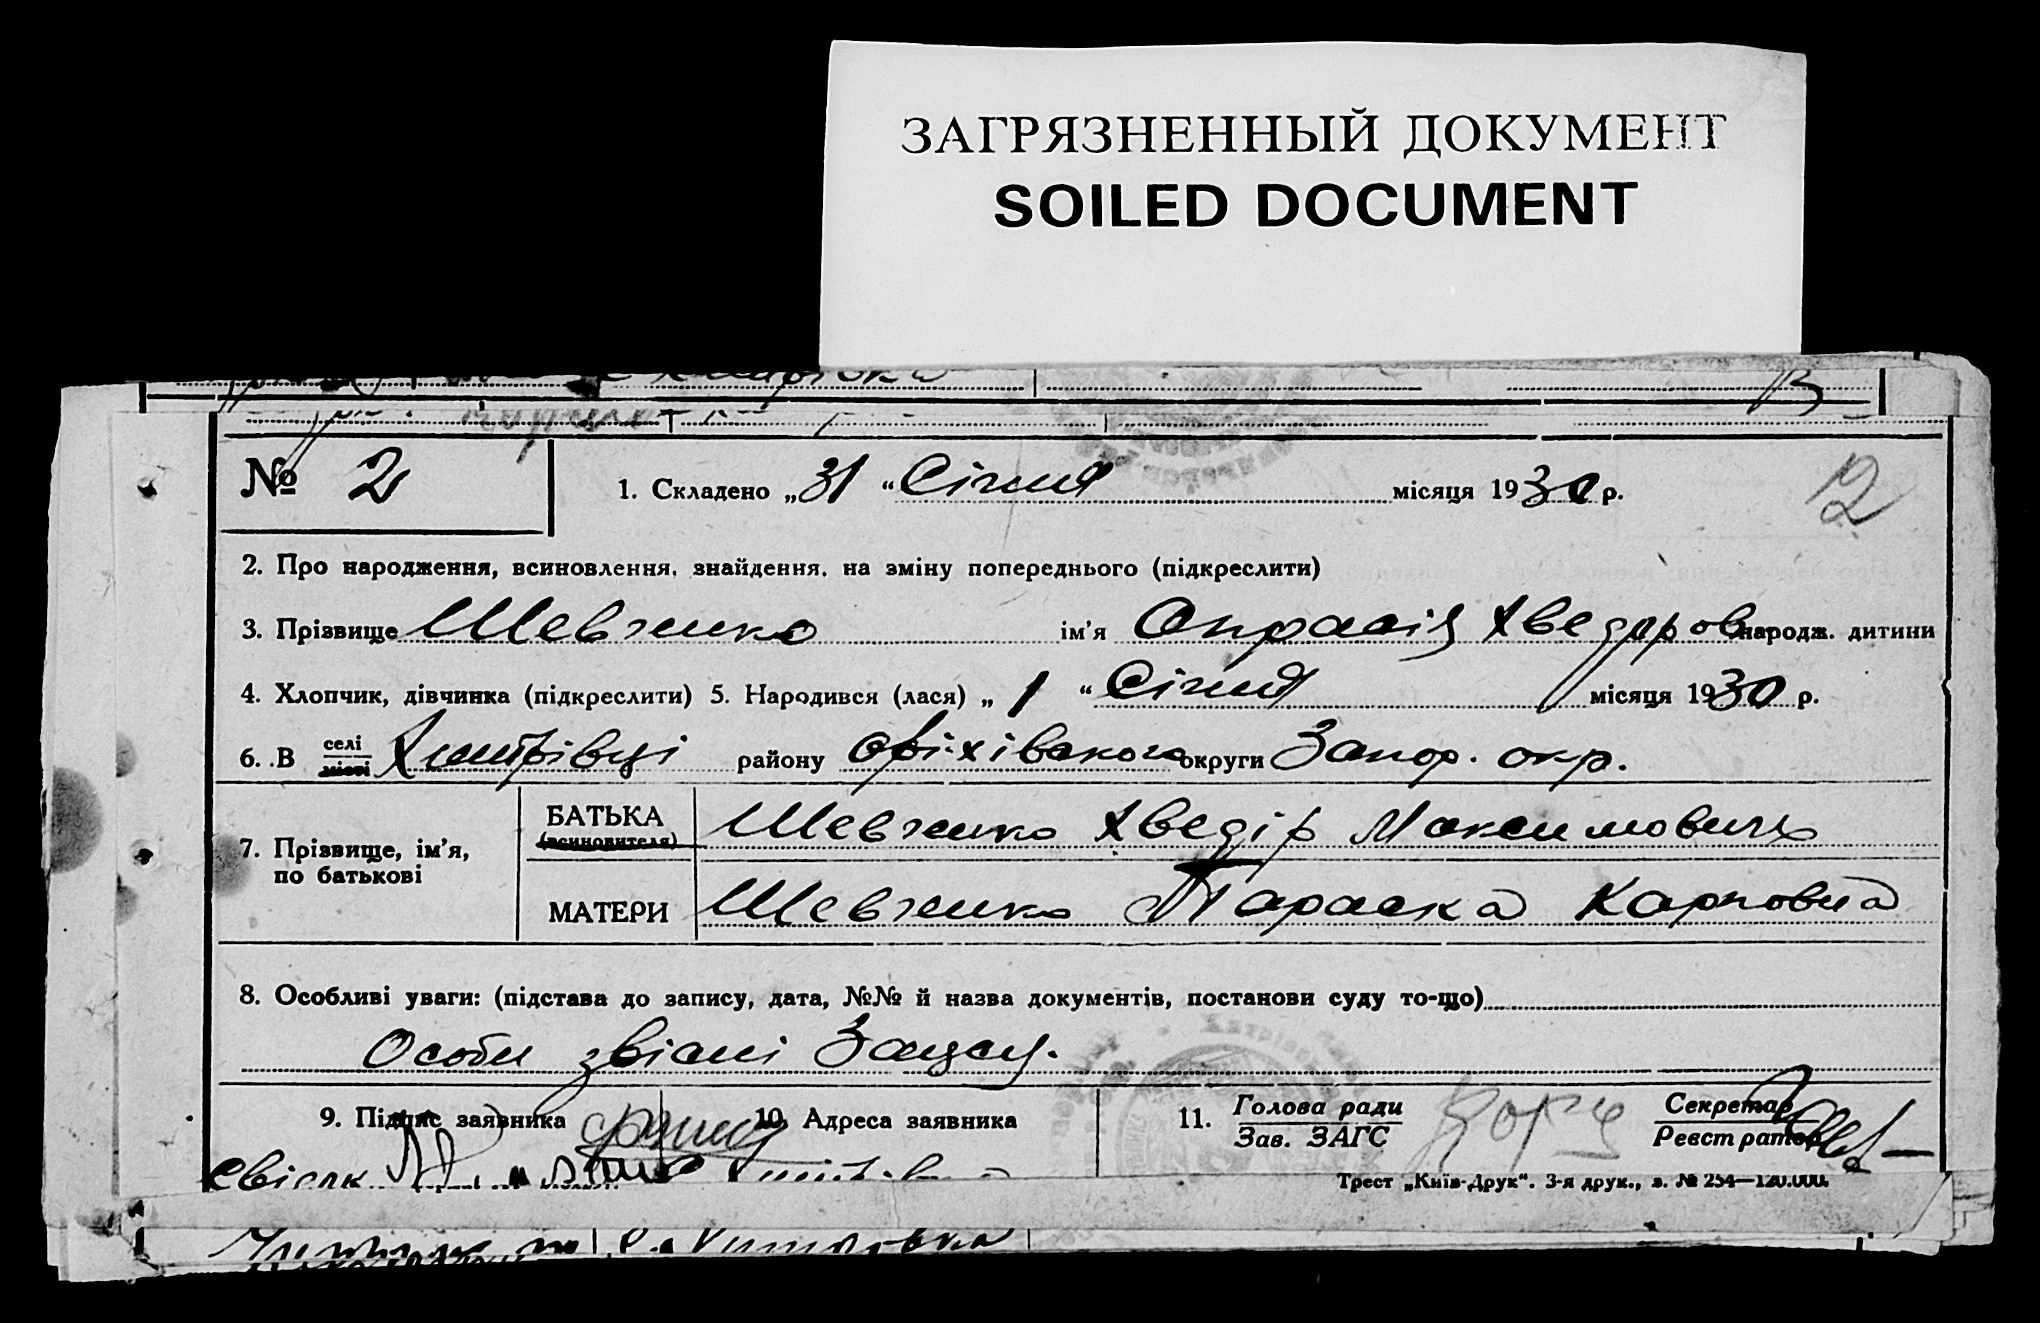 ЗАГРЯЗНЕННЫЙ ДОКУМЕНТ
SOILED DOCUMENT
№ 2
1. Складено „31“ Січня місяця 1930 р.
2
2. Про народження, всиновлення, знайдення, на зміну попереднього (підкреслити)
3. Прізвище Шевченко ім’я Опрасія Хведоров народж. дитини
4. Хлопчик, дівчинка (підкреслити) 5. Народився (лася) „1“ Січня місяця 1930 р.
6. В селі місті Хитрівці району Оріхівского округи Запор. окр.
7. Прізвище, ім’я, по батькові
БАТЬКА (всиновителя) Шевченко Хведір Максимович
МАТЕРИ Шевченко Параска Карповна
8. Особливі уваги: (підстава до запису, дата, №№ й назва документів, постанови суду то-що)
Особи звісні Загсу.
9. Підпис заявника 10. Адреса заявника 11. Голова ради Зав. ЗАГС Секретар Реєстратор
Трест „Київ-Друк“. 3-я друк., з. № 254—120.000.